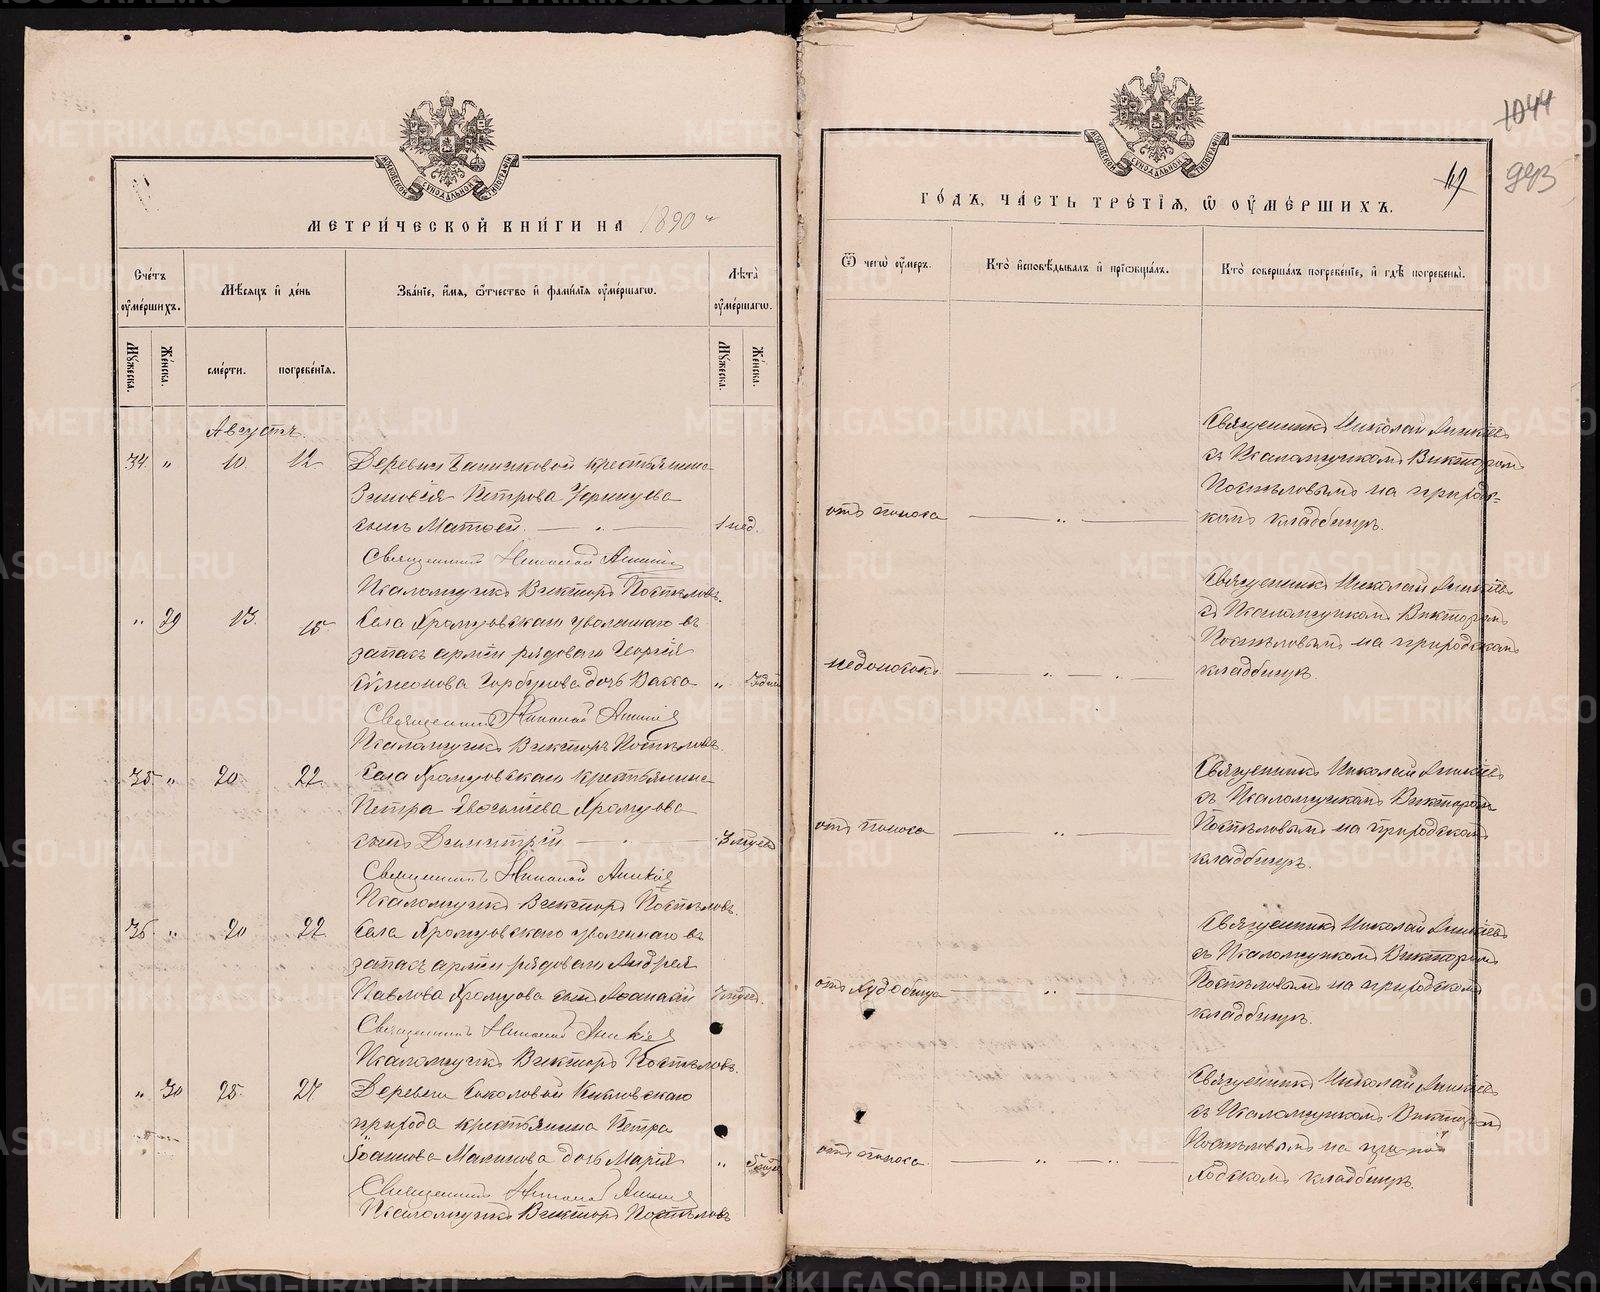 МЕТРИ́ЧЕСКОЙ КНИ́ГИ НА 1890 й
Сче́тъ ᲂу҆ме́ршихъ.
Мѣ́сяцъ и҆ де́нь
Зва́нїе, и҆́мя, ѻ҆́тчество и҆ фами́лїя ᲂу҆ме́ршагѡ.
Лѣ́та ᲂу҆ме́ршагѡ.
Мꙋ́жеска.
Же́нска.
сме́рти.
погребе́нїя.
Мꙋ́жеска.
Же́нска.
Августъ.
34 „ 10 12 Деревни крестьянина
Зиновія Петрова
сынъ Матѳей. 1 нед.
Священникъ Николай Аникіевъ
Псаломщикъ Викторъ Поспѣловъ.
„ 29 13. 15 Села Хромцовскаго уволеннаго въ
запасъ арміи рядоваго Георгія
Сѵмеонова Горбунова дочь Васса „ 3 дни
Священникъ Николай Аникіевъ
Псаломщикъ Викторъ Поспѣловъ.
35 „ 20 22 Села Хромцовскаго крестьянина
Петра Хромцова
сынъ Димитрій 3 мѣсяц
Священникъ Николай Аникіевъ
Псаломщикъ Викторъ Поспѣловъ.
36 „ 20 22 Села Хромцовскаго уволеннаго въ
запасъ арміи рядоваго Андрея
Павлова Хромцова сынъ Аѳанасій
Священникъ Николай Аникіевъ
Псаломщикъ Викторъ Поспѣловъ.
„ 30 25 27 Деревни Соколовой
прихода крестьянина Петра
Іоаннова дочь Марія „
Священникъ Николай Аникіевъ
Псаломщикъ Викторъ Поспѣловъ
1044
993
49
ГО́ДЪ, ЧА́СТЬ ТРЕ́ТЇЯ, Ѽ ОУ҆МЕ́РШИХЪ.
Ѿ чегѡ̀ ᲂу҆́меръ.
Кто̀ и҆сповѣ́дывалъ и҆ прїѡбща́лъ.
Кто̀ соверша́лъ погребе́нїе, и҆ гдѣ̀ погребены̀.
отъ поноса
Священникъ Николай Аникіевъ
съ Псаломщикомъ Викторомъ
Поспѣловымъ на приход-
комъ кладбищѣ.
недоносокъ
Священникъ Николай Аникіевъ
съ Псаломщикомъ Викторомъ
Поспѣловымъ на приходскомъ
кладбищѣ
отъ поноса
Священникъ Николай Аникіевъ
съ Псаломщикомъ Викторомъ
Поспѣловымъ на приходскомъ
кладбищѣ.
отъ худобища
Священникъ Николай Аникіевъ
съ Псаломщикомъ Викторомъ
Поспѣловымъ на приходскомъ
кладбищѣ.
отъ поноса
Священникъ Николай Аникіевъ
съ Псаломщикомъ Викторомъ
Поспѣловымъ на при-
ходскомъ кладбищѣ.
METRIKI.GASO-URAL.RU